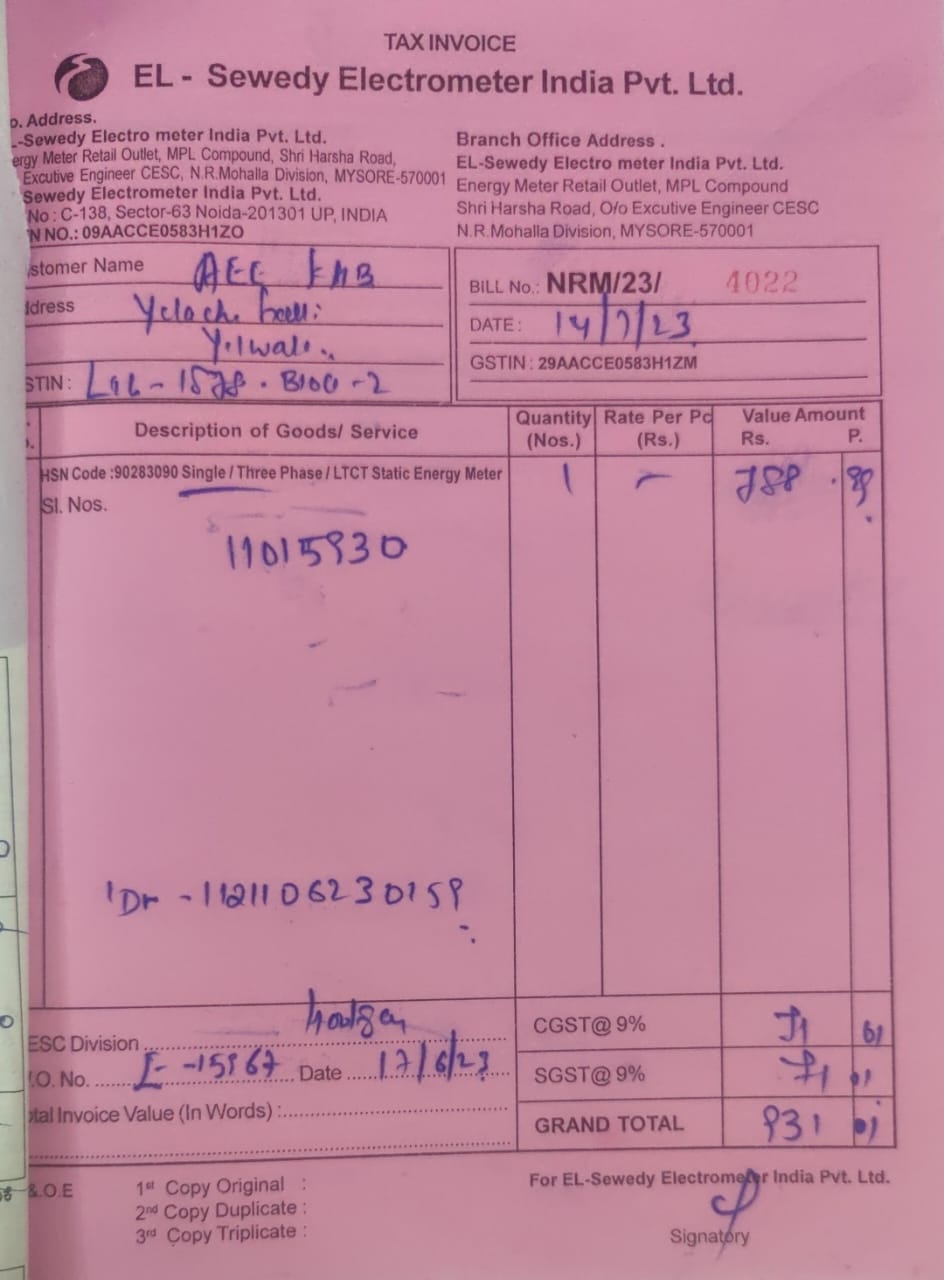 TAX INVOICE
EL - Sewedy Electrometer India Pvt. Ltd.
o. Address.
-Sewedy Electro meter India Pvt. Ltd.
ergy Meter Retail Outlet, MPL Compound, Shri Harsha Road,
Excutive Engineer CESC, N.R.Mohalla Division, MYSORE-570001
Sewedy Electrometer India Pvt. Ltd.
No : C-138, Sector-63 Noida-201301 UP, INDIA
N NO.: 09AACCE0583H1ZO
Branch Office Address .
EL-Sewedy Electro meter India Pvt. Ltd.
Energy Meter Retail Outlet, MPL Compound
Shri Harsha Road, O/o Excutive Engineer CESC
N.R.Mohalla Division, MYSORE-570001
stomer Name AEE KHB
dress
Yilwala
STIN :
BILL No.: NRM/23/ 4022
DATE : 14/7/23
GSTIN : 29AACCE0583H1ZM
Description of Goods/ Service Quantity (Nos.) Rate Per Pc (Rs.) Value Amount Rs. P.
HSN Code :90283090 Single / Three Phase / LTCT Static Energy Meter 1 - 788 . 99
Sl. Nos.
11015930
1121106230159
ESC Division
.O. No. 15967 Date 17/6/23
tal Invoice Value (In Words) :
CGST@ 9% 71 01
SGST@ 9% 71 01
GRAND TOTAL 931 01
&.O.E
1st Copy Original :
2nd Copy Duplicate :
3rd Copy Triplicate :
For EL-Sewedy Electrometer India Pvt. Ltd.
Signatory